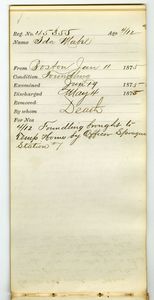 Reg. No. 45358 Age 4/12
Name Ida Mabel
From Boston Jan 11 1875
Condition Foundling
Examined Jan 19 1875
Discharged May 4 1875
Removed:
By whom Death
For No:
4/12 Foundling brought to
Temp Home by Officer Sprague
Station 7